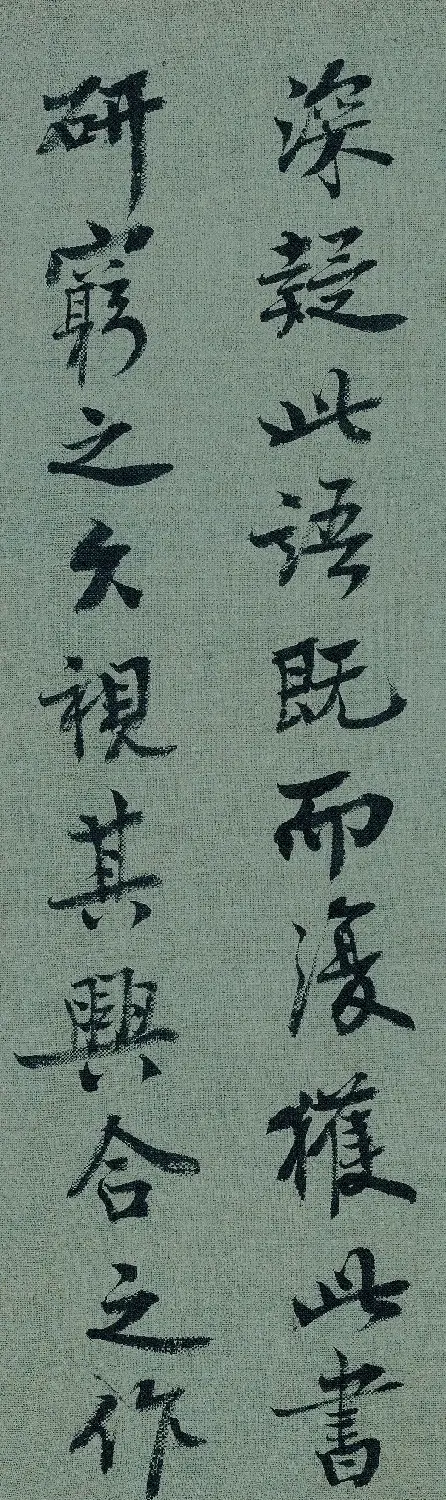 深疑此語既而復獲此書
研窮之久視其興合之作